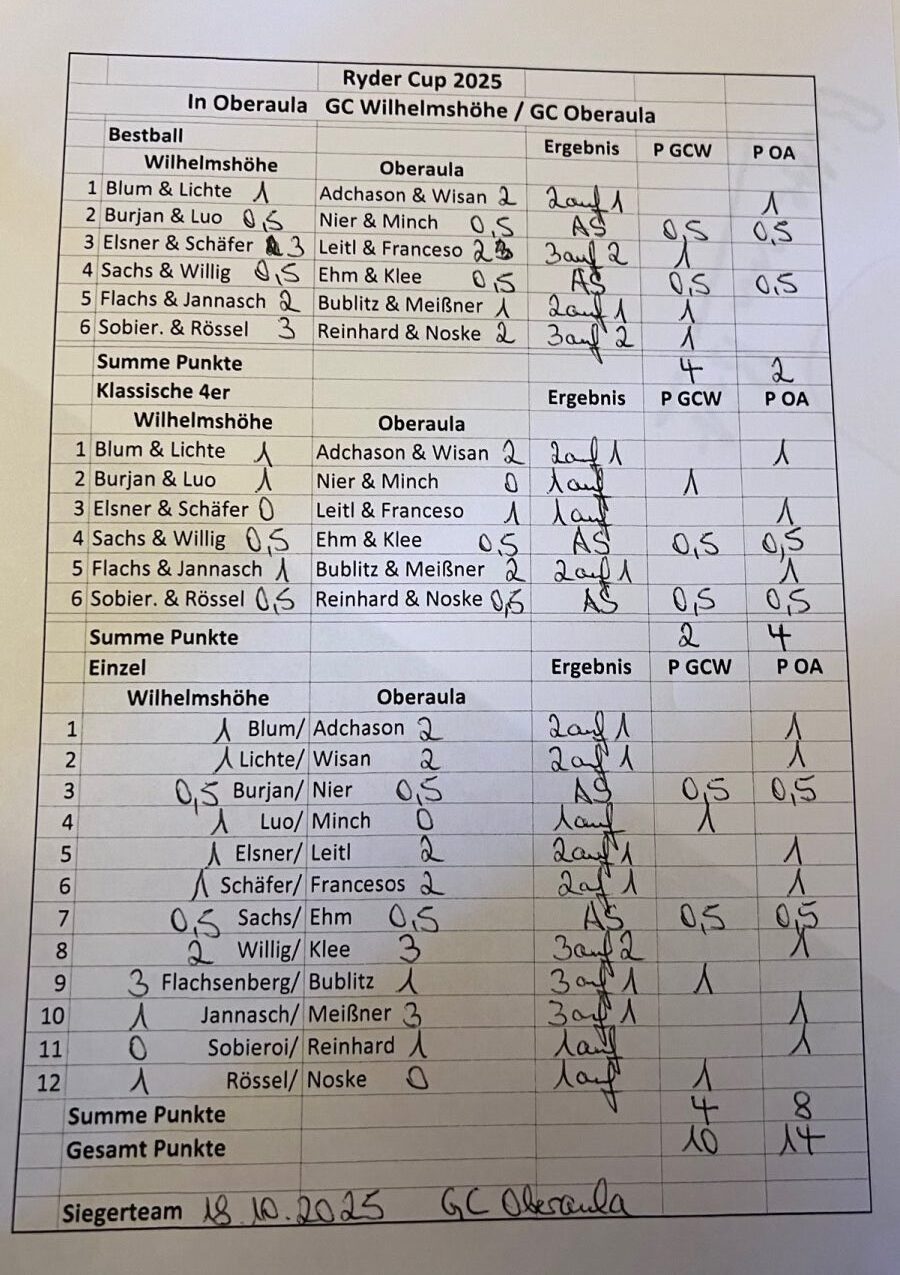 Ryder Cup 2025
In Oberaula GC Wilhelmshöhe / GC Oberaula
Bestball Ergebnis P GCW P OA
Wilhelmshöhe Oberaula
1 Blum & Lichte 1 Adchason & Wisan 2 2auf 1 1
2 Burjan & Luo 0,5 Nier & Minch 0,5 AS 0,5 0,5
3 Elsner & Schäfer 3 Leitl & Franceso 2 3auf 2 1
4 Sachs & Willig 0,5 Ehm & Klee 0,5 AS 0,5 0,5
5 Flachs & Jannasch 2 Bublitz & Meißner 1 2auf 1 1
6 Sobier. & Rössel 3 Reinhard & Noske 2 3auf 2 1
Summe Punkte 4 2
Klassische 4er Ergebnis P GCW P OA
Wilhelmshöhe Oberaula
1 Blum & Lichte 1 Adchason & Wisan 2 2auf 1 1
2 Burjan & Luo 1 Nier & Minch 0 1auf 1
3 Elsner & Schäfer 0 Leitl & Franceso 1 1auf 1
4 Sachs & Willig 0,5 Ehm & Klee 0,5 AS 0,5 0,5
5 Flachs & Jannasch 1 Bublitz & Meißner 2 2auf 1 1
6 Sobier. & Rössel 0,5 Reinhard & Noske 0,5 AS 0,5 0,5
Summe Punkte 2 4
Einzel Ergebnis P GCW P OA
Wilhelmshöhe Oberaula
1 1 Blum/ Adchason 2 2auf 1 1
2 1 Lichte/ Wisan 2 2auf 1 1
3 0,5 Burjan/ Nier 0,5 AS 0,5 0,5
4 1 Luo/ Minch 0 1auf 1
5 1 Elsner/ Leitl 2 2auf 1 1
6 1 Schäfer/ Francesos 2 2auf 1 1
7 0,5 Sachs/ Ehm 0,5 AS 0,5 0,5
8 2 Willig/ Klee 3 3auf 2 1
9 3 Flachsenberg/ Bublitz 1 3auf 1 1
10 1 Jannasch/ Meißner 3 3auf 1 1
11 0 Sobieroi/ Reinhard 1 1auf 1
12 1 Rössel/ Noske 0 1auf 1
Summe Punkte 4 8
Gesamt Punkte 10 14
Siegerteam 18.10.2025 GC Oberaula